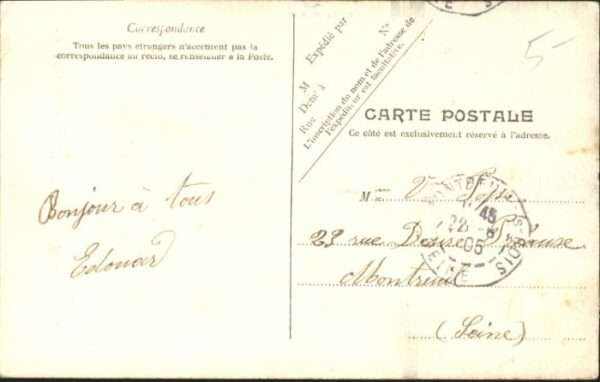 Correspondance
Tous les pays étrangers n'acceptent pas la
correspondance au recto, se renseigner à la Poste.
Bonjour à tous
Edouard
Expédié par
M
Demt à
Rue
N°
L'inscription du nom et de l'adresse de
l'expéditeur est facultative.
5
CARTE POSTALE
Ce côté est exclusivement réservé à l'adresse.
M
23 rue Danse
Montreuil
(Seine)
MONTREUIL-S-BOIS
SEINE
22
45
8
05